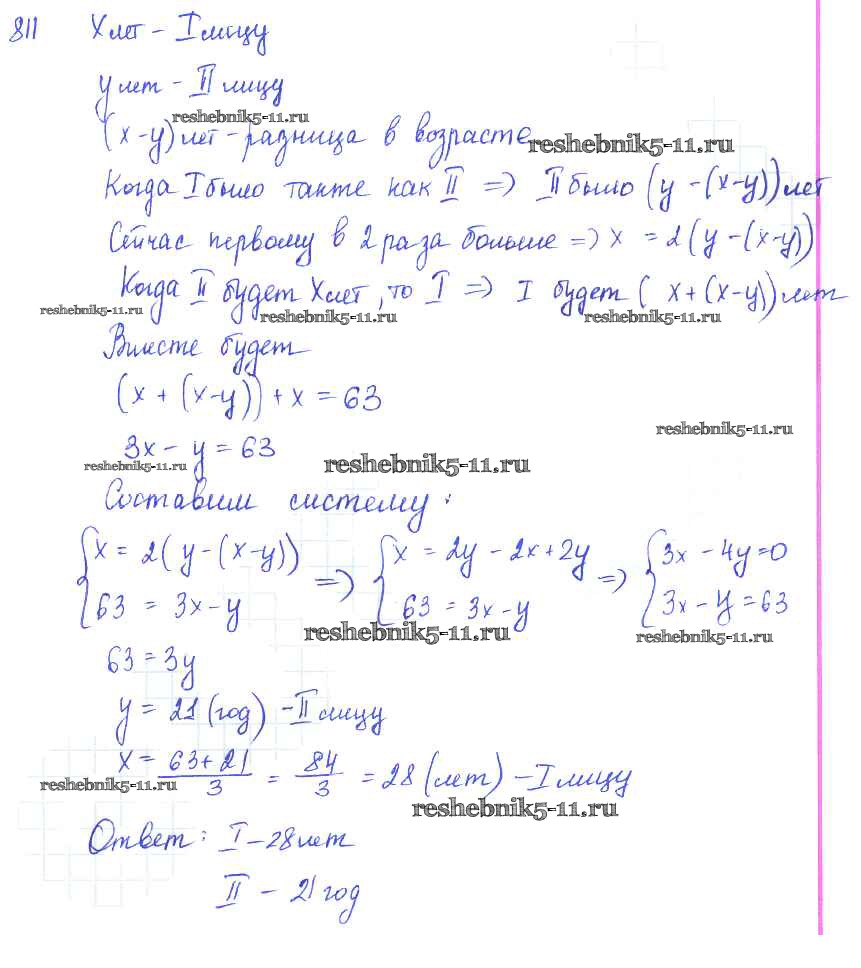 811 X лет - I лицу
y лет - II лицу
reshebnik5-11.ru
(x-y) лет - разница в возрасте
reshebnik5-11.ru
Когда I было також как II => II было (y - (x-y)) лет
Сейчас первому в 2 раза больше => x = 2(y - (x-y))
Когда II будет X лет, то I => I будет ( x + (x-y)) лет
reshebnik5-11.ru reshebnik5-11.ru reshebnik5-11.ru
Вместе будет
(x + (x-y)) + x = 63
reshebnik5-11.ru
3x - y = 63
reshebnik5-11.ru reshebnik5-11.ru
Составим систему:
{x = 2(y - (x-y)) => {x = 2y - 2x + 2y => {3x - 4y = 0
{63 = 3x - y {63 = 3x - y {3x - y = 63
reshebnik5-11.ru reshebnik5-11.ru
63 = 3y
y = 21 (год) - II лицу
x = (63+21)/3 = 84/3 = 28 (лет) - I лицу
reshebnik5-11.ru reshebnik5-11.ru
Ответ: I - 28 лет
II - 21 год